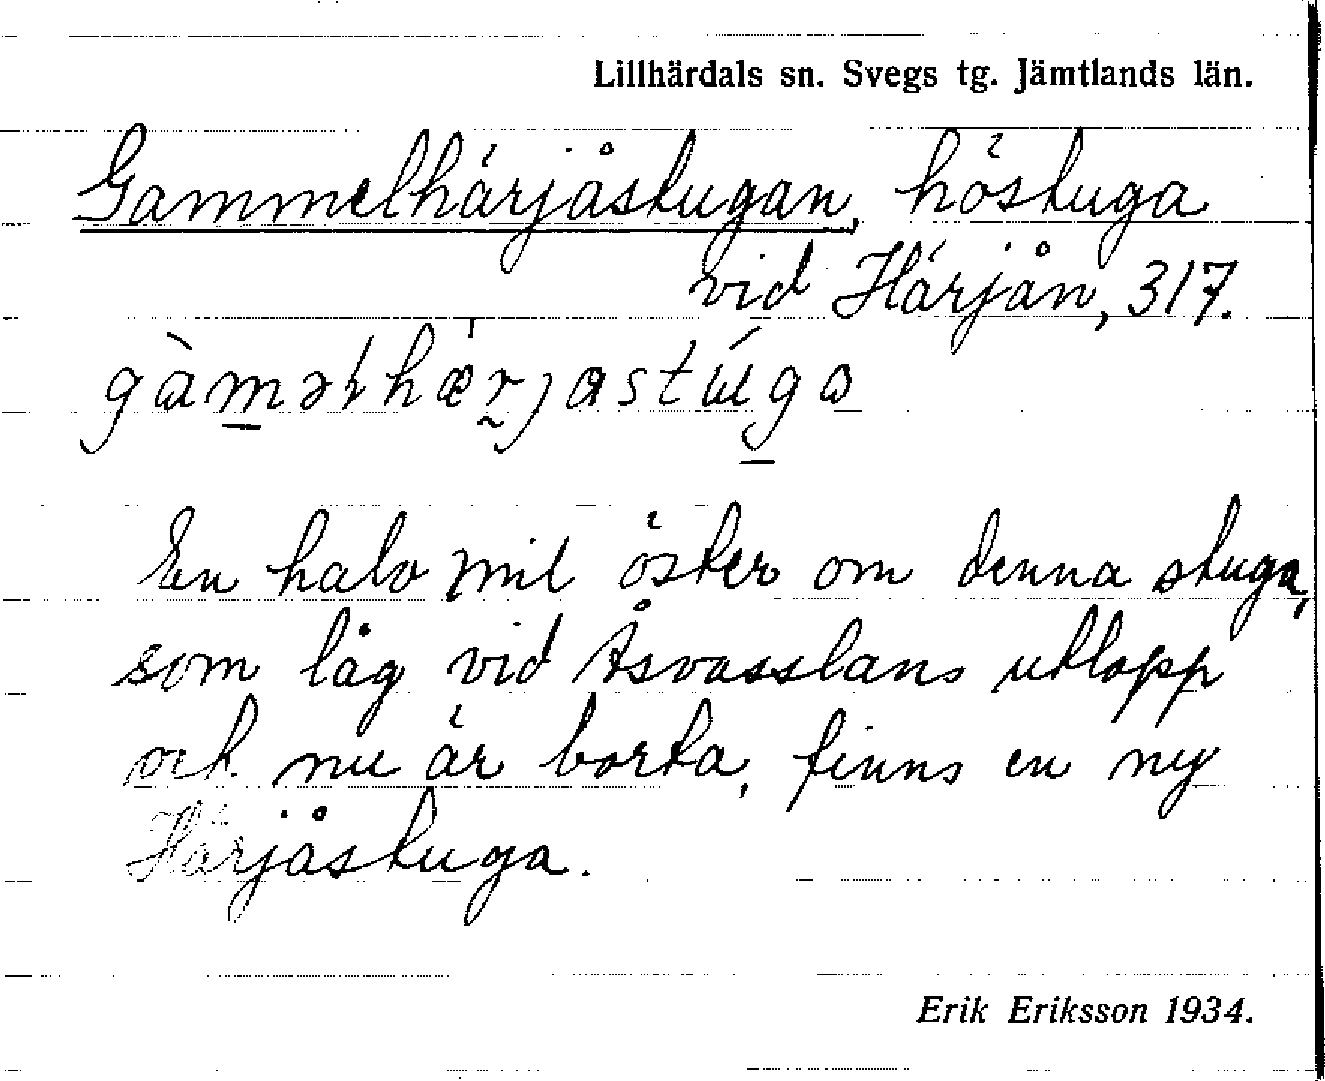 Lillhärdals sn. Svegs tg. Jämtlands län.
Gammelhärjåstugan, höstuga
vid Härjån, 317.
gàməlhærjastúga
En halv mil öster om denna stuga,
som låg vid Åsvasslans utlopp
och nu är borta, finns en ny
Härjåstuga.
Erik Eriksson 1934.